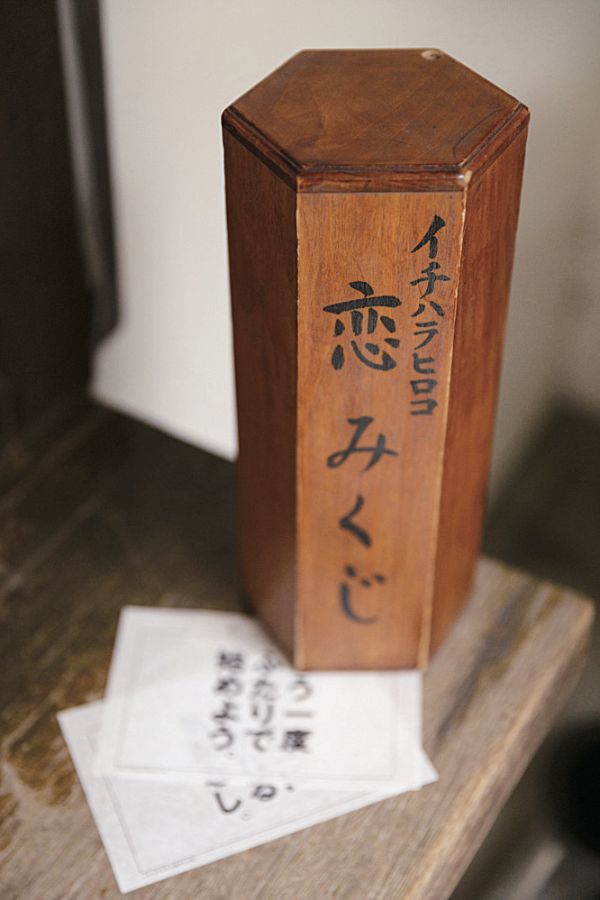 イチハラヒロコ
恋みくじ
う一度
ふたりで
始めよう。
ね、
し。